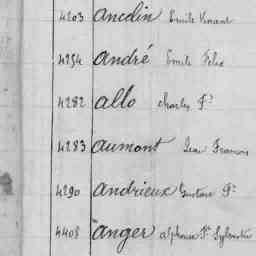 4203 Ancelin Emile Vincent
4254 André Emile Felix
4282 allo charles F.
4283 aumont Jean Francois
4290 Andrieux Gustave P.
4408 anger alphonse P. Sylvestre